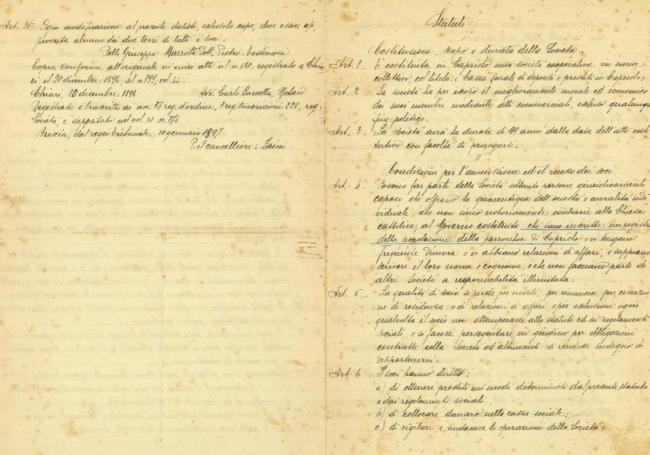 Art. 36. Ogni modificazione al presente statuto, salvo lo scopo, deve essere ap-
provata almeno dai due terzi di tutti i soci.
Pelli Giuseppe Marcotti Dott. Pietro
Copia conforme all'originale in miei atti al n. registrato a Chia-
ri il 20 dicembre 1896 al n. vol.
Chiari, 20 dicembre 1896 Avv. Carlo Barcella, Notaio
Registrato e trascritto ai nn. reg. d'ordine, reg. trascrizioni, reg.
Società, e depositato nel vol. n.
Brescia, dal regio tribunale, 10 gennaio 1897
Il cancelliere:
Statuto
Costituzione, scopo e durata della Società.
Art. 1. È costituita, in Capriolo una società cooperativa, in nome
collettivo col titolo: Cassa rurale di depositi e prestiti in Capriolo.
Art. 2. La società ha per iscopo il miglioramento morale ed economico
dei suoi membri mediante atti commerciali, escluso qualunque
fine politico.
Art. 3. La Società avrà la durata di 99 anni dalla data dell'atto costi-
tutivo con facoltà di proroga.
Condizioni per l'ammissione ed il recesso dei soci
Art. 4. Possono far parte della Società soltanto persone giuridicamente
capaci che offrano la guarentigia dell'onestà e moralità indi-
viduale, che non siano notoriamente contrarie alla Chiesa
cattolica, al Governo costituito, che siano inscritte nei registri
della popolazione della parrocchia di Capriolo o vi tengano
frequente dimora o vi abbiano relazioni d'affari, e sappiano
scrivere il loro nome e cognome, e che non facciano parte di
altre Società a responsabilità illimitata.
Art. 5. La qualità di socio si perde per morte, per rinuncia, per cessazio-
ne di residenza, o di relazioni d'affari, e per esclusione ogni
qualvolta il socio non ottemperasse allo statuto ed ai regolamenti
sociali o si facesse perseguitare in giudizio per obbligazioni
contratte colla Società od altrimenti si rendesse indegno di
appartenervi.
Art. 6. I soci hanno diritto:
a) di ottenere prestiti nei modi determinati dal presente statuto
e dai regolamenti sociali
b) di collocare danaro nella cassa sociale;
c) di vigilare e sindacare le operazioni della Società;